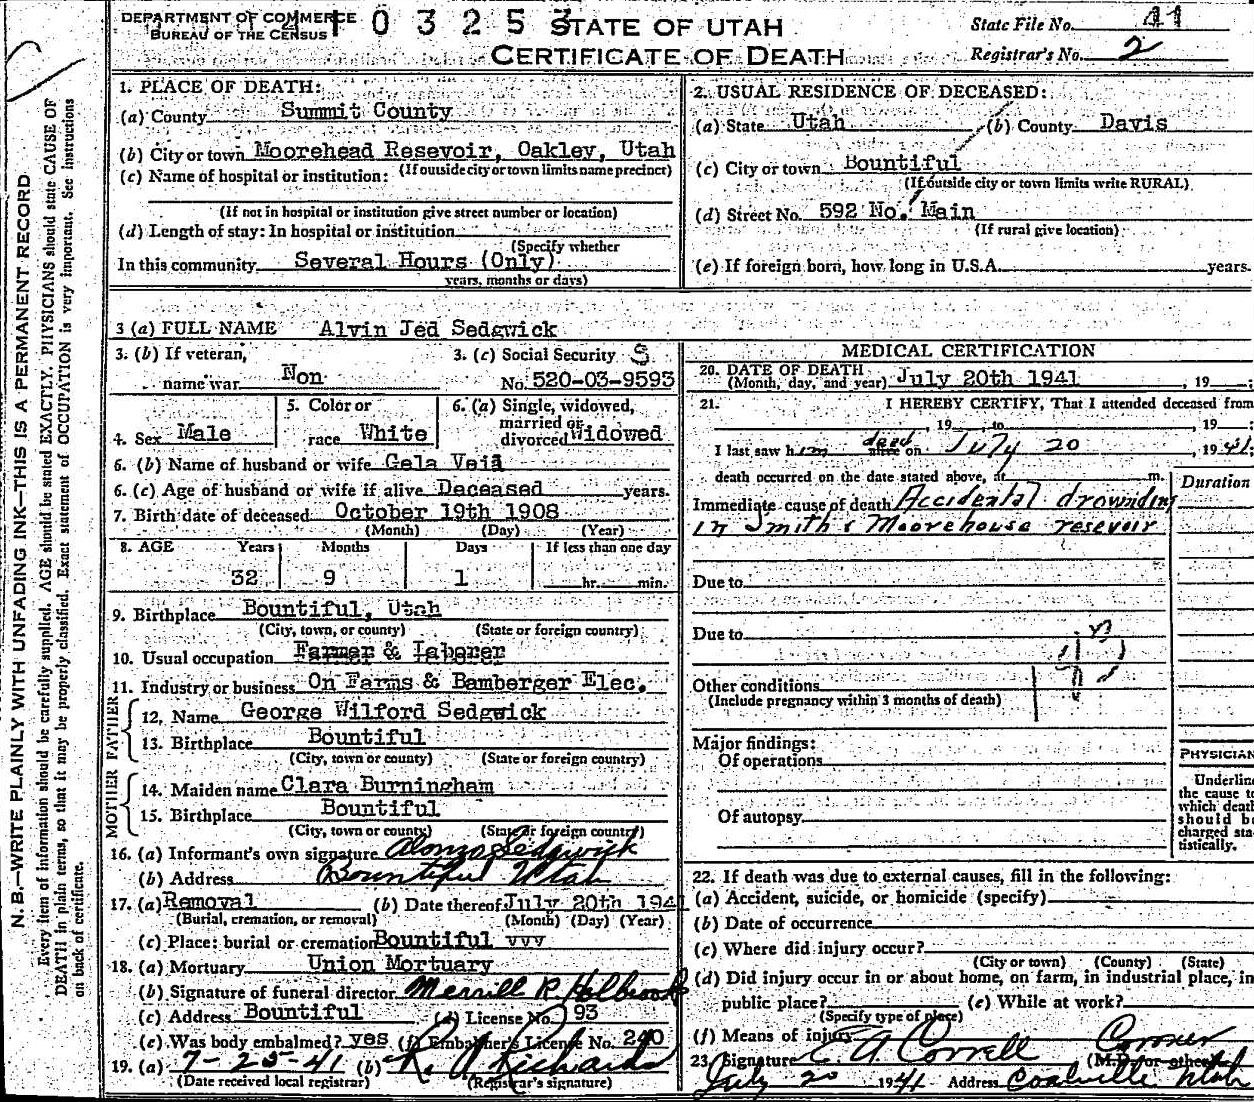 DEPARTMENT OF COMMERCE
BUREAU OF THE CENSUS
1 0 3 2 5 3
STATE OF UTAH
CERTIFICATE OF DEATH
State File No. 41
Registrar's No. 2
N. B.—WRITE PLAINLY WITH UNFADING INK—THIS IS A PERMANENT RECORD
Every item of information should be carefully supplied. AGE should be stated EXACTLY. PHYSICIANS should state CAUSE OF
DEATH in plain terms, so that it may be properly classified. Exact statement of OCCUPATION is very important. See instructions
on back of certificate.
1. PLACE OF DEATH:
(a) County Summit County
(b) City or town Moorehead Resevoir, Oakley, Utah
(If outside city or town limits name precinct)
(c) Name of hospital or institution:
(If not in hospital or institution give street number or location)
(d) Length of stay: In hospital or institution
(Specify whether
In this community Several Hours (Only)
years, months or days)
2. USUAL RESIDENCE OF DECEASED:
(a) State Utah (b) County Davis
(c) City or town Bountiful
(If outside city or town limits write RURAL)
(d) Street No. 592 No. Main
(If rural give location)
(e) If foreign born, how long in U.S.A. years.
3 (a) FULL NAME Alvin Jed Sedgwick
3. (b) If veteran,
name war Non
3. (c) Social Security S
No. 520-03-9593
4. Sex Male
5. Color or
race White
6. (a) Single, widowed,
married or
divorced Widowed
6. (b) Name of husband or wife Gela
6. (c) Age of husband or wife if alive Deceased years.
7. Birth date of deceased October 19th 1908
(Month) (Day) (Year)
8. AGE Years Months Days If less than one day
32 9 1 hr. min.
9. Birthplace Bountiful, Utah
(City, town, or county) (State or foreign country)
10. Usual occupation Farmer & Laborer
11. Industry or business On Farms & Bamberger Elec.
FATHER
12. Name George Wilford Sedgwick
13. Birthplace Bountiful
(City, town or county) (State or foreign country)
MOTHER
14. Maiden name Clara Burningham
15. Birthplace Bountiful
(City, town or county) (State or foreign country)
16. (a) Informant's own signature Alonzo Sedgwick
(b) Address Bountiful Utah
17. (a) Removal (b) Date thereof July 20th 1941
(Burial, cremation, or removal) (Month) (Day) (Year)
(c) Place: burial or cremation Bountiful vvv
18. (a) Mortuary Union Mortuary
(b) Signature of funeral director Merrill R. Holbrook
(c) Address Bountiful (d) License No. 93
(e) Was body embalmed? yes (f) Embalmer's License No. 240
19. (a) 7-25-41 (b) R. A. Richards
(Date received local registrar) (Registrar's signature)
MEDICAL CERTIFICATION
20. DATE OF DEATH
(Month, day, and year) July 20th 1941, 19 ;
21. I HEREBY CERTIFY, That I attended deceased from
, 19 , to , 19 ;
I last saw him dead alive on July 20, 1941;
death occurred on the date stated above, at m.
Duration
Immediate cause of death Accidental drownding
in Smith & Moorehouse resevoir
Due to
Due to
Other conditions
(Include pregnancy within 3 months of death)
Major findings:
Of operations
Of autopsy
PHYSICIAN
Underline
the cause to
which death
should be
charged sta-
tistically.
22. If death was due to external causes, fill in the following:
(a) Accident, suicide, or homicide (specify)
(b) Date of occurrence
(c) Where did injury occur?
(City or town) (County) (State)
(d) Did injury occur in or about home, on farm, in industrial place, in
public place? (e) While at work?
(Specify type of place)
(f) Means of injury
23. Signature C A Correll Corner
(M.D. or other)
July 20 1941 Address Coalville Utah